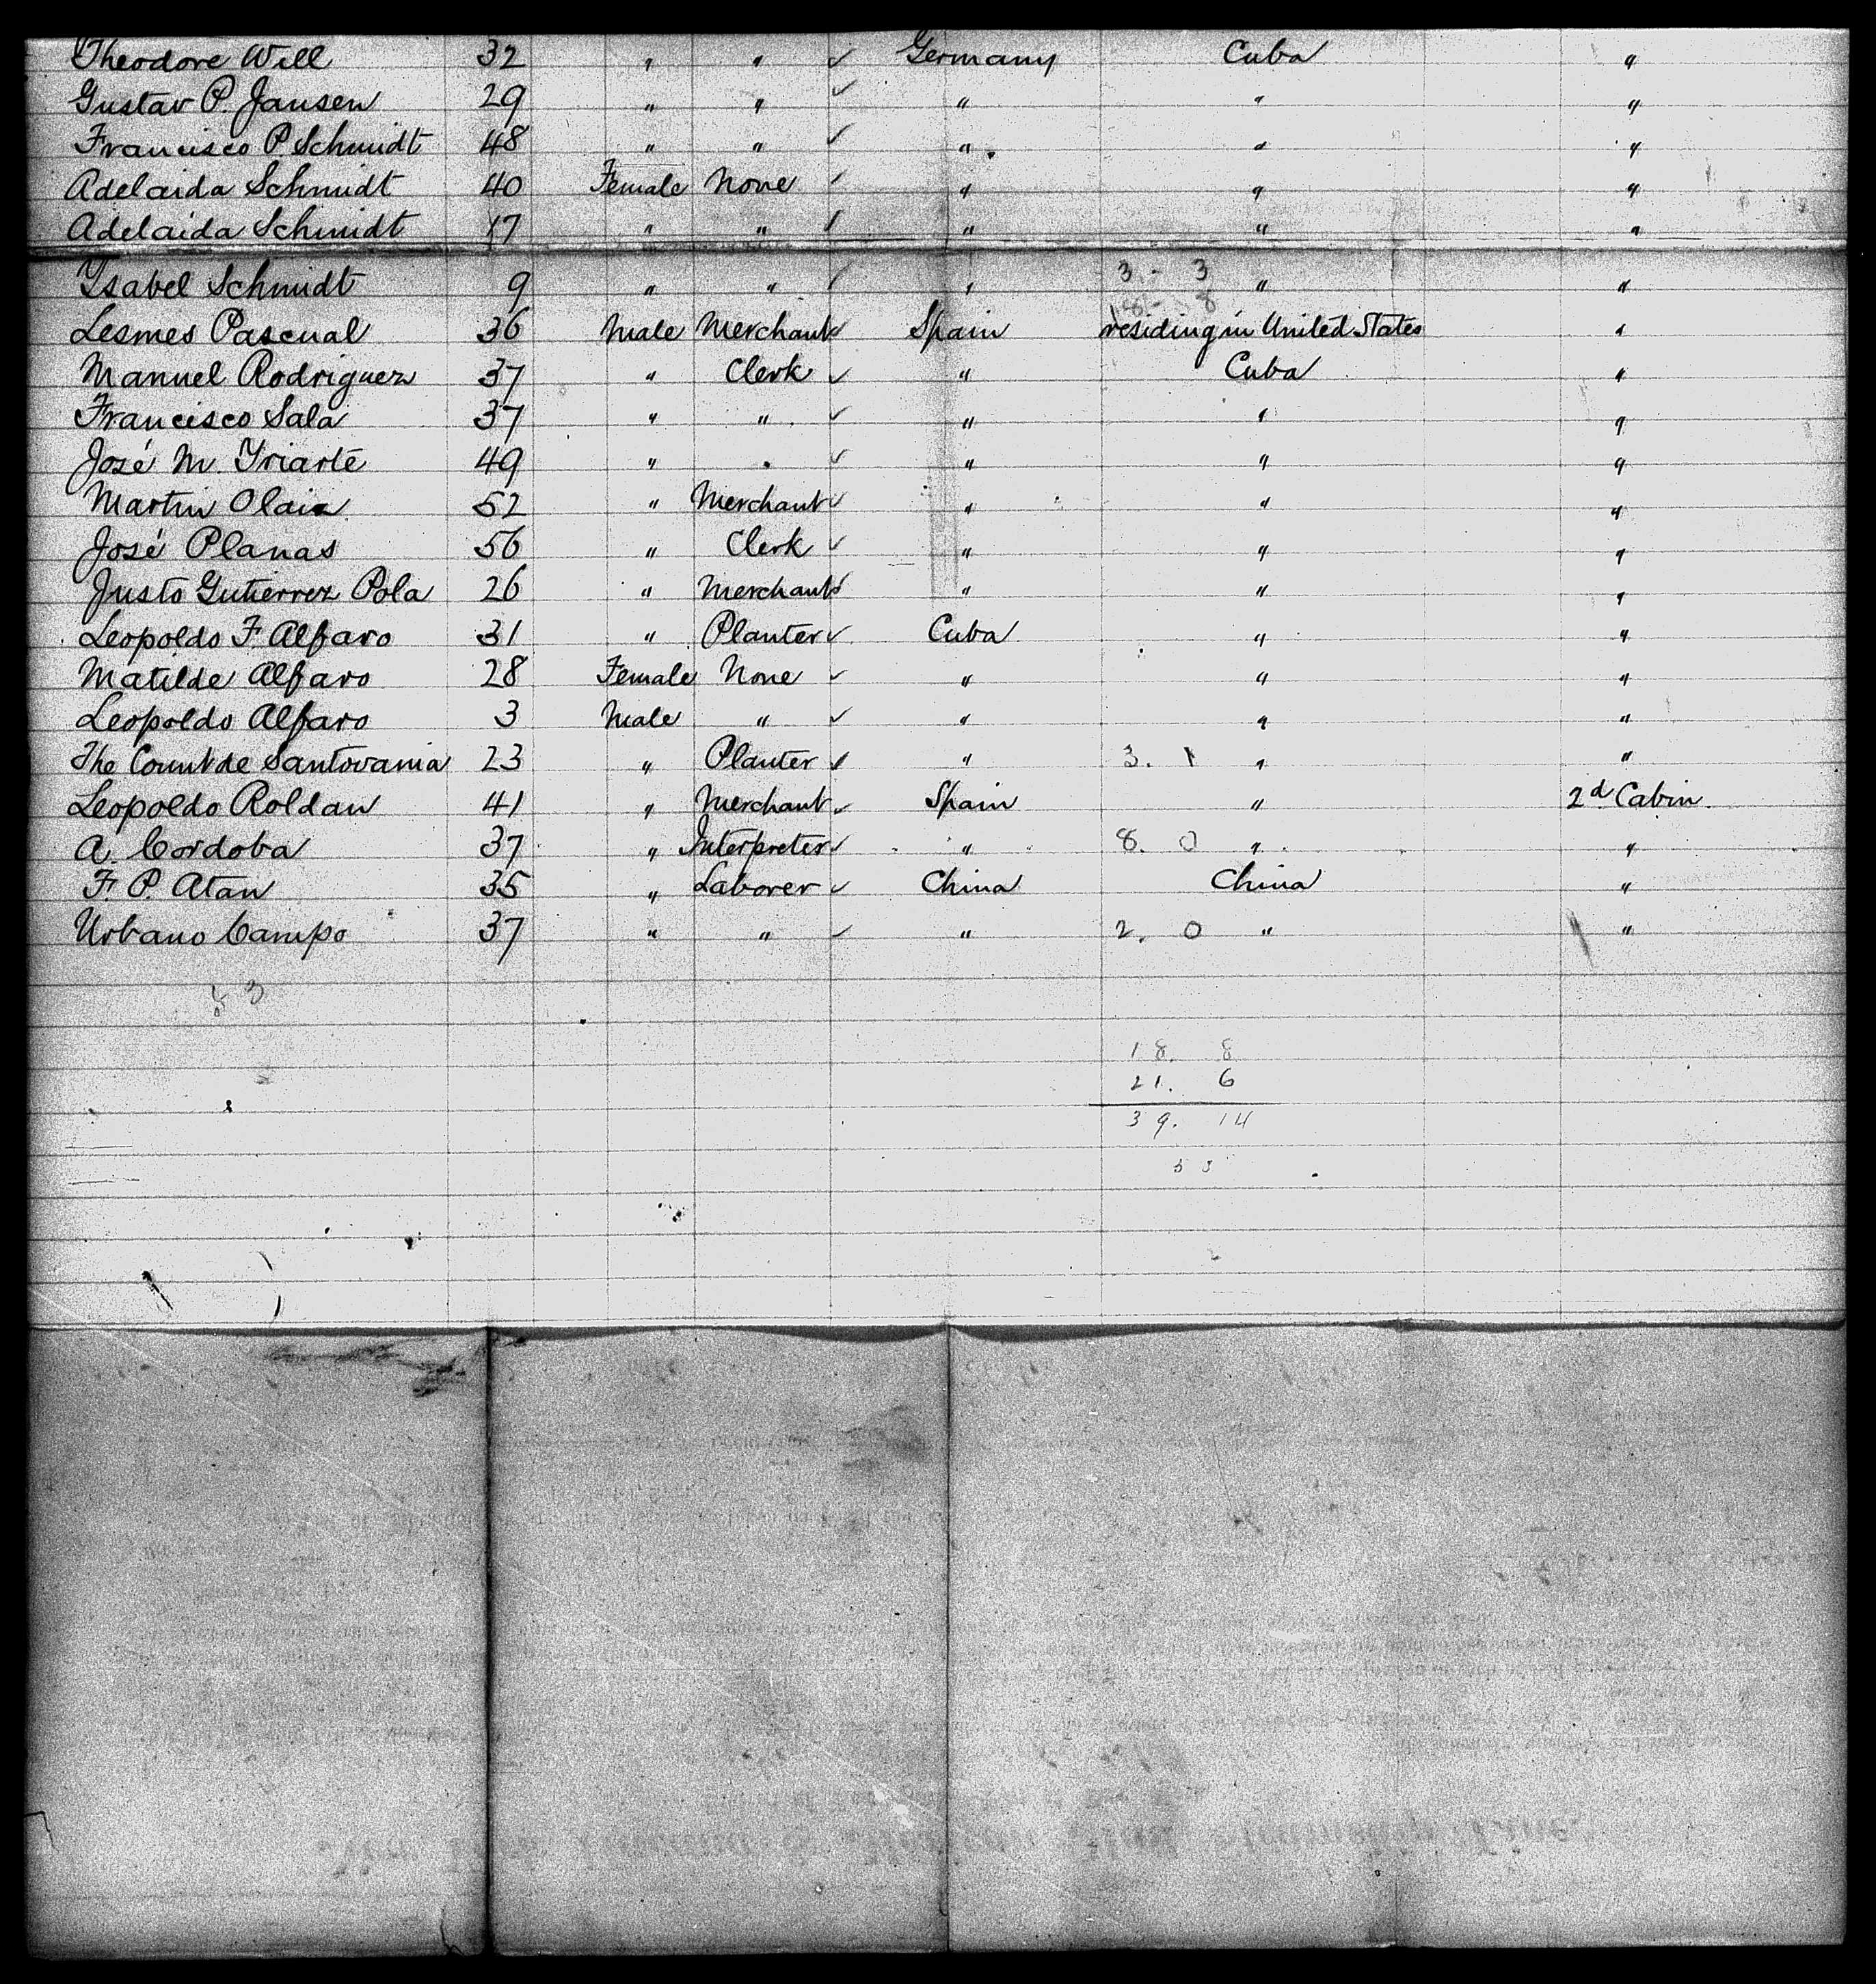 Theodore Will 32 " " ✓ Germany Cuba "
Gustav P. Jansen 29 " " ✓ " " "
Francisco P. Schmidt 48 " " ✓ " " "
Adelaida Schmidt 40 Female None ✓ " " "
Adelaida Schmidt 17 " " ✓ " " "
Ysabel Schmidt 9 " " ✓ " 3 - 3 " "
18 - 8
Lesmes Pascual 36 Male Merchant ✓ Spain residing in United States "
Manuel Rodriguez 37 " Clerk ✓ " Cuba "
Francisco Sala 37 " " ✓ " " "
José M. Yriarte 49 " " ✓ " " "
Martin Olaix 52 " Merchant ✓ " " "
José Planas 56 " Clerk ✓ " " "
Justo Gutierrez Pola 26 " Merchant ✓ " " "
Leopoldo F. Alfaro 31 " Planter ✓ Cuba " "
Matilde Alfaro 28 Female None ✓ " " "
Leopoldo Alfaro 3 Male " ✓ " " "
The Count de Santovania 23 " Planter ✓ " 3. 1 " "
Leopoldo Roldan 41 " Merchant ✓ Spain " 2d Cabin
A. Cordoba 37 " Interpreter ✓ " 8. 0 " "
F. P. Atan 35 " Laborer ✓ China China "
Urbano Campo 37 " " ✓ " 2. 0 " "
53
18. 8
21. 6
39. 14
53